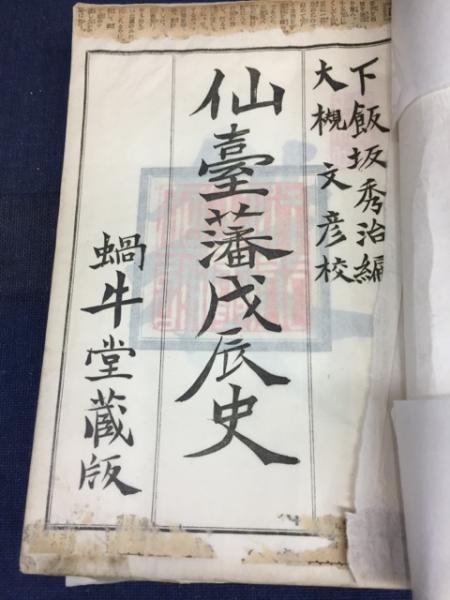 下飯坂秀治編
大槻文彦校
仙臺藩戊辰史
蝸牛堂蔵版